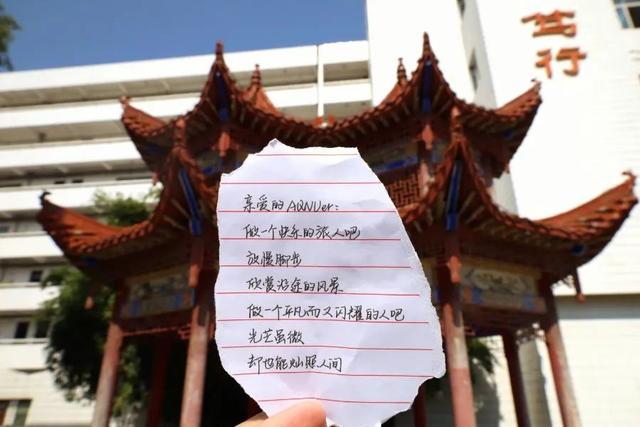 笃行
亲爱的AQNUer:
做一个快乐的旅人吧
放慢脚步
欣赏沿途的风景
做一个平凡而又闪耀的人吧
光芒虽微
却也能灿照人间